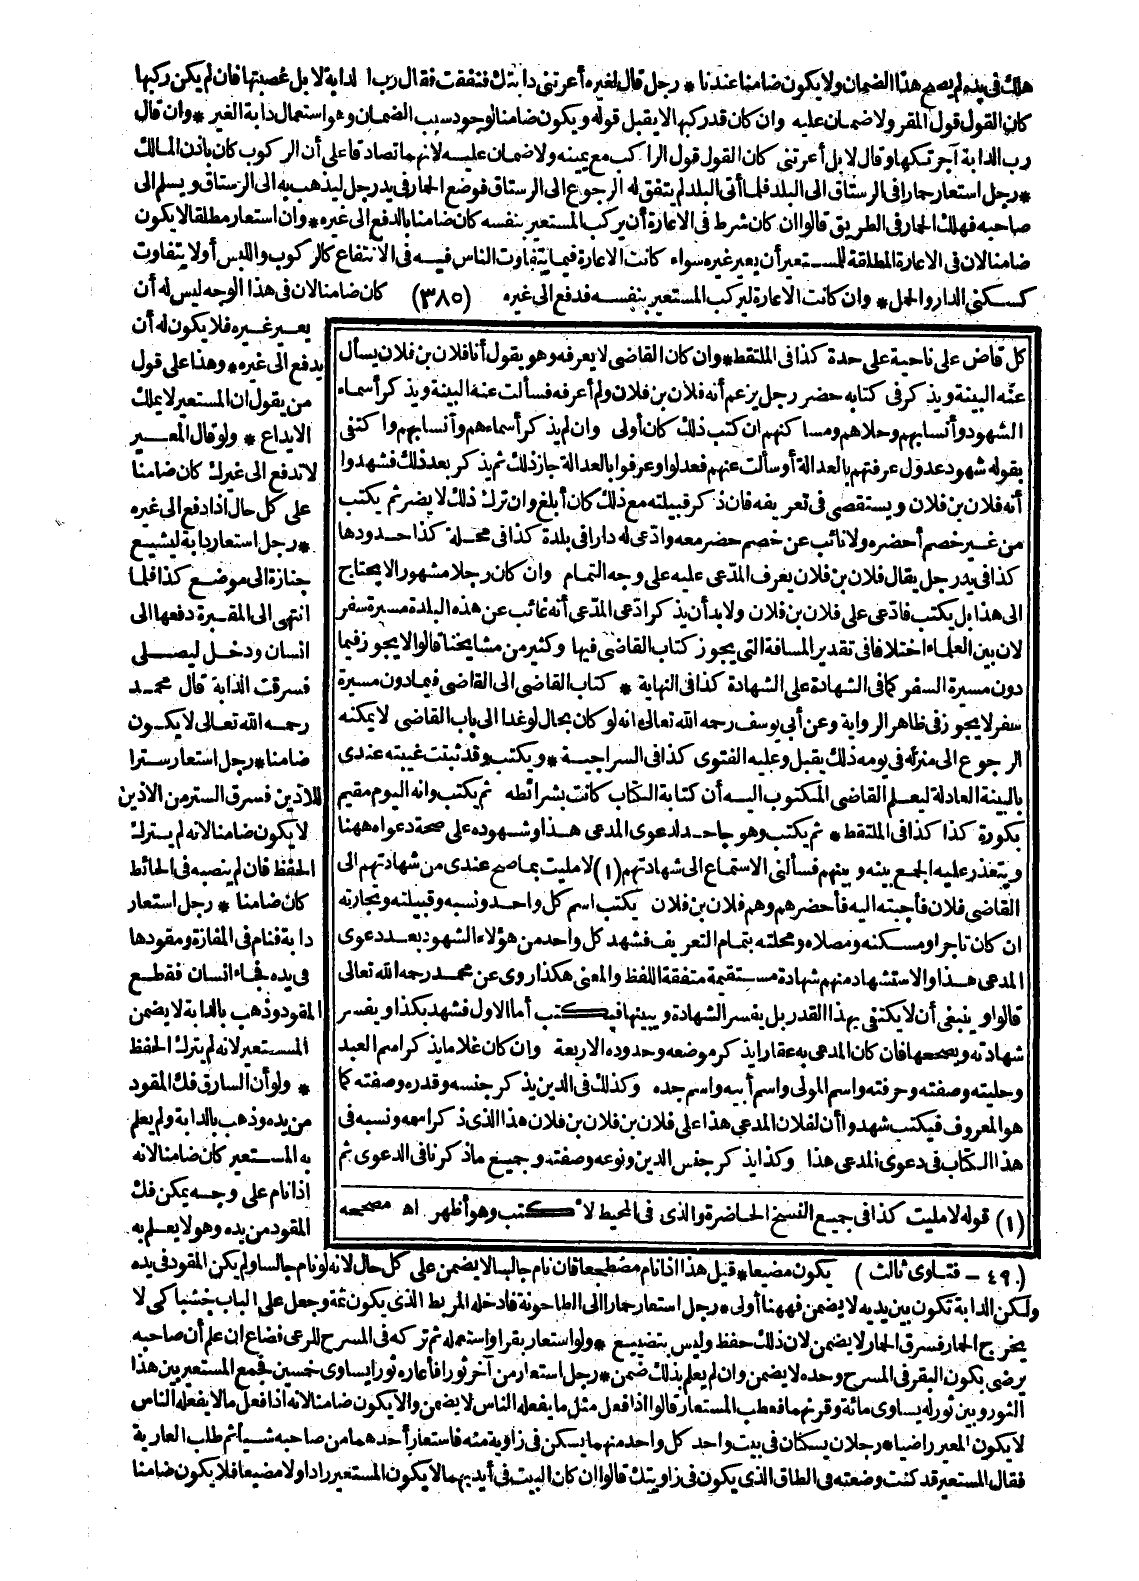 هلك في يده لم يصح هذا الضمان ولا يكون ضامنا عندنا * رجل قال لغيره أعرتني دابتك فنفقت فقال رب الدابة لا بل غصبتها فان لم يكن ركبها
كان القول قول المقر ولا ضمان عليه وان كان قد ركبها لا يقبل قوله ويكون ضامنا لوجود سبب الضمان وهو استعمال دابة الغير * وان قال
رب الدابة آجرتكها وقال لا بل أعرتني كان القول قول الراكب مع يمينه ولا ضمان عليه لانهما تصادقا على أن الركوب كان باذن المالك
* رجل استعار حمارا في الرستاق الى البلد فلما أتى البلد لم يتفق له الرجوع الى الرستاق فوضع الحمار في يد رجل ليذهب به الى الرستاق ويسلم الى
صاحبه فهلك الحمار في الطريق قالوا ان كان شرط في الاعارة أن يركب المستعير بنفسه كان ضامنا بالدفع الى غيره * وان استعار مطلقا لا يكون
ضامنا لان في الاعارة المطلقة للمستعير أن يعير غيره سواء كانت الاعارة فيما يتفاوت الناس فيه في الانتفاع كالركوب واللبس أو لا يتفاوت
كسكنى الدار والحمل * وان كانت الاعارة ليركب المستعير بنفسه فدفع الى غيره (٣٨٥) كان ضامنا لان في هذا الوجه ليس له أن
يعير غيره فلا يكون له أن
يدفع الى غيره * وهذا على قول
من يقول ان المستعير لا يملك
الايداع * ولو قال المعير
لا تدفع الى غيرك كان ضامنا
على كل حال اذا دفع الى غيره
* رجل استعار دابة ليشيع
جنازة الى موضع كذا فلما
انتهى الى المقبرة دفعها الى
انسان ودخل ليصلى
فسرقت الدابة قال محمد
رحمه الله تعالى لا يكون
ضامنا * رجل استعار سترا
للاذين فسرق الستر من الاذين
لا يكون ضامنا لانه لم يترك
الحفظ فان لم ينصبه في الحائط
كان ضامنا * رجل استعار
دابة فنام في المفازة ومقودها
في يده فجاء انسان فقطع
المقود وذهب بالدابة لا يضمن
المستعير لانه لم يترك الحفظ
* ولو أن السارق فك المقود
من يده وذهب بالدابة ولم يعلم
به المستعير كان ضامنا لانه
اذا نام على وجه يمكن فك
المقود من يده وهو لا يعلم به
كل قاض على ناحية على حدة كذا في الملتقط * وان كان القاضى لا يعرفه وهو يقول أنا فلان بن فلان يسأل
عنه البينة ويذكر في كتابه حضر رجل يزعم أنه فلان بن فلان ولم أعرفه فسألت عنه البينة ويذكر أسماء
الشهود وأنسابهم وحلاهم ومساكنهم ان كتب ذلك كان أولى وان لم يذكر أسماءهم وأنسابهم واكتفى
بقوله شهود عدول عرفتهم بالعدالة أو سألت عنهم فعدلوا وعرفوا بالعدالة جاز ذلك ثم يذكر بعد ذلك فشهدوا
أنه فلان بن فلان ويستقصى في تعريفه فان ذكر قبيلته مع ذلك كان أبلغ وان ترك ذلك لا يضر ثم يكتب
من غير خصم أحضره ولا نائب عن خصم حضر معه وادّعى له دارا في بلدة كذا في محلة كذا حدودها
كذا في يد رجل يقال فلان بن فلان يعرف المدّعى عليه على وجه التمام وان كان رجلا مشهورا لا يحتاج
الى هذا بل يكتب فادّعى على فلان بن فلان ولا بد أن يذكر ادّعى المدّعى أنه غائب عن هذه البلدة مسيرة سفر
لان بين العلماء اختلافا في تقدير المسافة التى يجوز كتاب القاضى فيها وكثير من مشايخنا قالوا لا يجوز فيما
دون مسيرة السفر كما في الشهادة على الشهادة كذا في النهاية * كتاب القاضى الى القاضى فيما دون مسيرة
سفر لا يجوز في ظاهر الرواية وعن أبى يوسف رحمه الله تعالى انه لو كان بحال لو غدا الى باب القاضى لا يمكنه
الرجوع الى منزله في يومه ذلك يقبل وعليه الفتوى كذا في السراجية * ويكتب وقد ثبتت غيبته عندى
بالبينة العادلة ليعلم القاضى المكتوب اليه أن كتابة الكتاب كانت بشرائطه ثم يكتب وانه اليوم مقيم
بكورة كذا كذا في الملتقط * ثم يكتب وهو جاحد لدعوى المدعى هذا وشهوده على صحة دعواه ههنا
ويتعذر عليه الجمع بينه وبينهم فسألنى الاستماع الى شهادتهم (١) لا مليت بما صح عندى من شهادتهم الى
القاضى فلان فأجبته اليه فأحضرهم وهم فلان بن فلان يكتب اسم كل واحد ونسبه وقبيلته وتجارته
ان كان تاجرا ومسكنه ومصلاه ومحلته بتمام التعريف فشهد كل واحد من هؤلاء الشهود بعد دعوى
المدعى هذا والاستشهاد منهم شهادة مستقيمة متفقة اللفظ والمعنى هكذا روى عن محمد رحمه الله تعالى
قالوا وينبغى أن لا يكتفى بهذا القدر بل يفسر الشهادة ويبينها فيكتب أما الاول فشهد بكذا ويفسر
شهادته ويصححها فان كان المدعى به عقارا يذكر موضعه وحدوده الاربعة وان كان غلاما يذكر اسم العبد
وحليته وصفته وحرفته واسم المولى واسم أبيه واسم جده وكذلك في الدين يذكر جنسه وقدره وصفته كما
هو المعروف فيكتب شهدوا أن لفلان المدعى هذا على فلان بن فلان بن فلان هذا الذى ذكر اسمه ونسبه في
هذا الكتاب في دعوى المدعى هذا وكذا يذكر جنس الدين ونوعه وصفته وجميع ما ذكرنا في الدعوى ثم
(١) قوله لا مليت كذا في جميع النسخ الحاضرة والذى في المحيط لاكتب وهو أظهر اه مصححه
(٤٩ - فتاوى ثالث) يكون مضيعا * قيل هذا اذا نام مضطجعا فان نام جالسا لا يضمن على كل حال لانه لو نام جالسا ولم يكن المقود في يده
ولكن الدابة تكون بين يديه لا يضمن فههنا أولى * رجل استعار حمارا الى الطاحونة فادخله المربط الذى يكون ثمة وجعل على الباب خشبا كى لا
يخرج الحمار فسرق الحمار لا يضمن لان ذلك حفظ وليس بتضييع * ولو استعار بقرا واستعمله ثم تركه في المسرح للرعى فضاع ان علم أن صاحبه
يرضى بكون البقر في المسرح وحده لا يضمن وان لم يعلم بذلك ضمن * رجل استعار من آخر ثورا فأعاره ثورا يساوى خمسين فجمع المستعير بين هذا
الثور وبين ثور له يساوى مائة وقرنهما فعطب المستعار قالوا اذا فعل مثل ما يفعله الناس لا يضمن والا يكون ضامنا لانه اذا فعل ما لا يفعله الناس
لا يكون المعير راضيا * رجلان يسكنان في بيت واحد كل واحد منهما يسكن في زاوية منه فاستعار أحدهما من صاحبه شيأ ثم طلب العارية
فقال المستعير قد كنت وضعته في الطاق الذى يكون في زاويتك قالوا ان كان البيت في أيديهما لا يكون المستعير رادا ولا مضيعا فلا يكون ضامنا